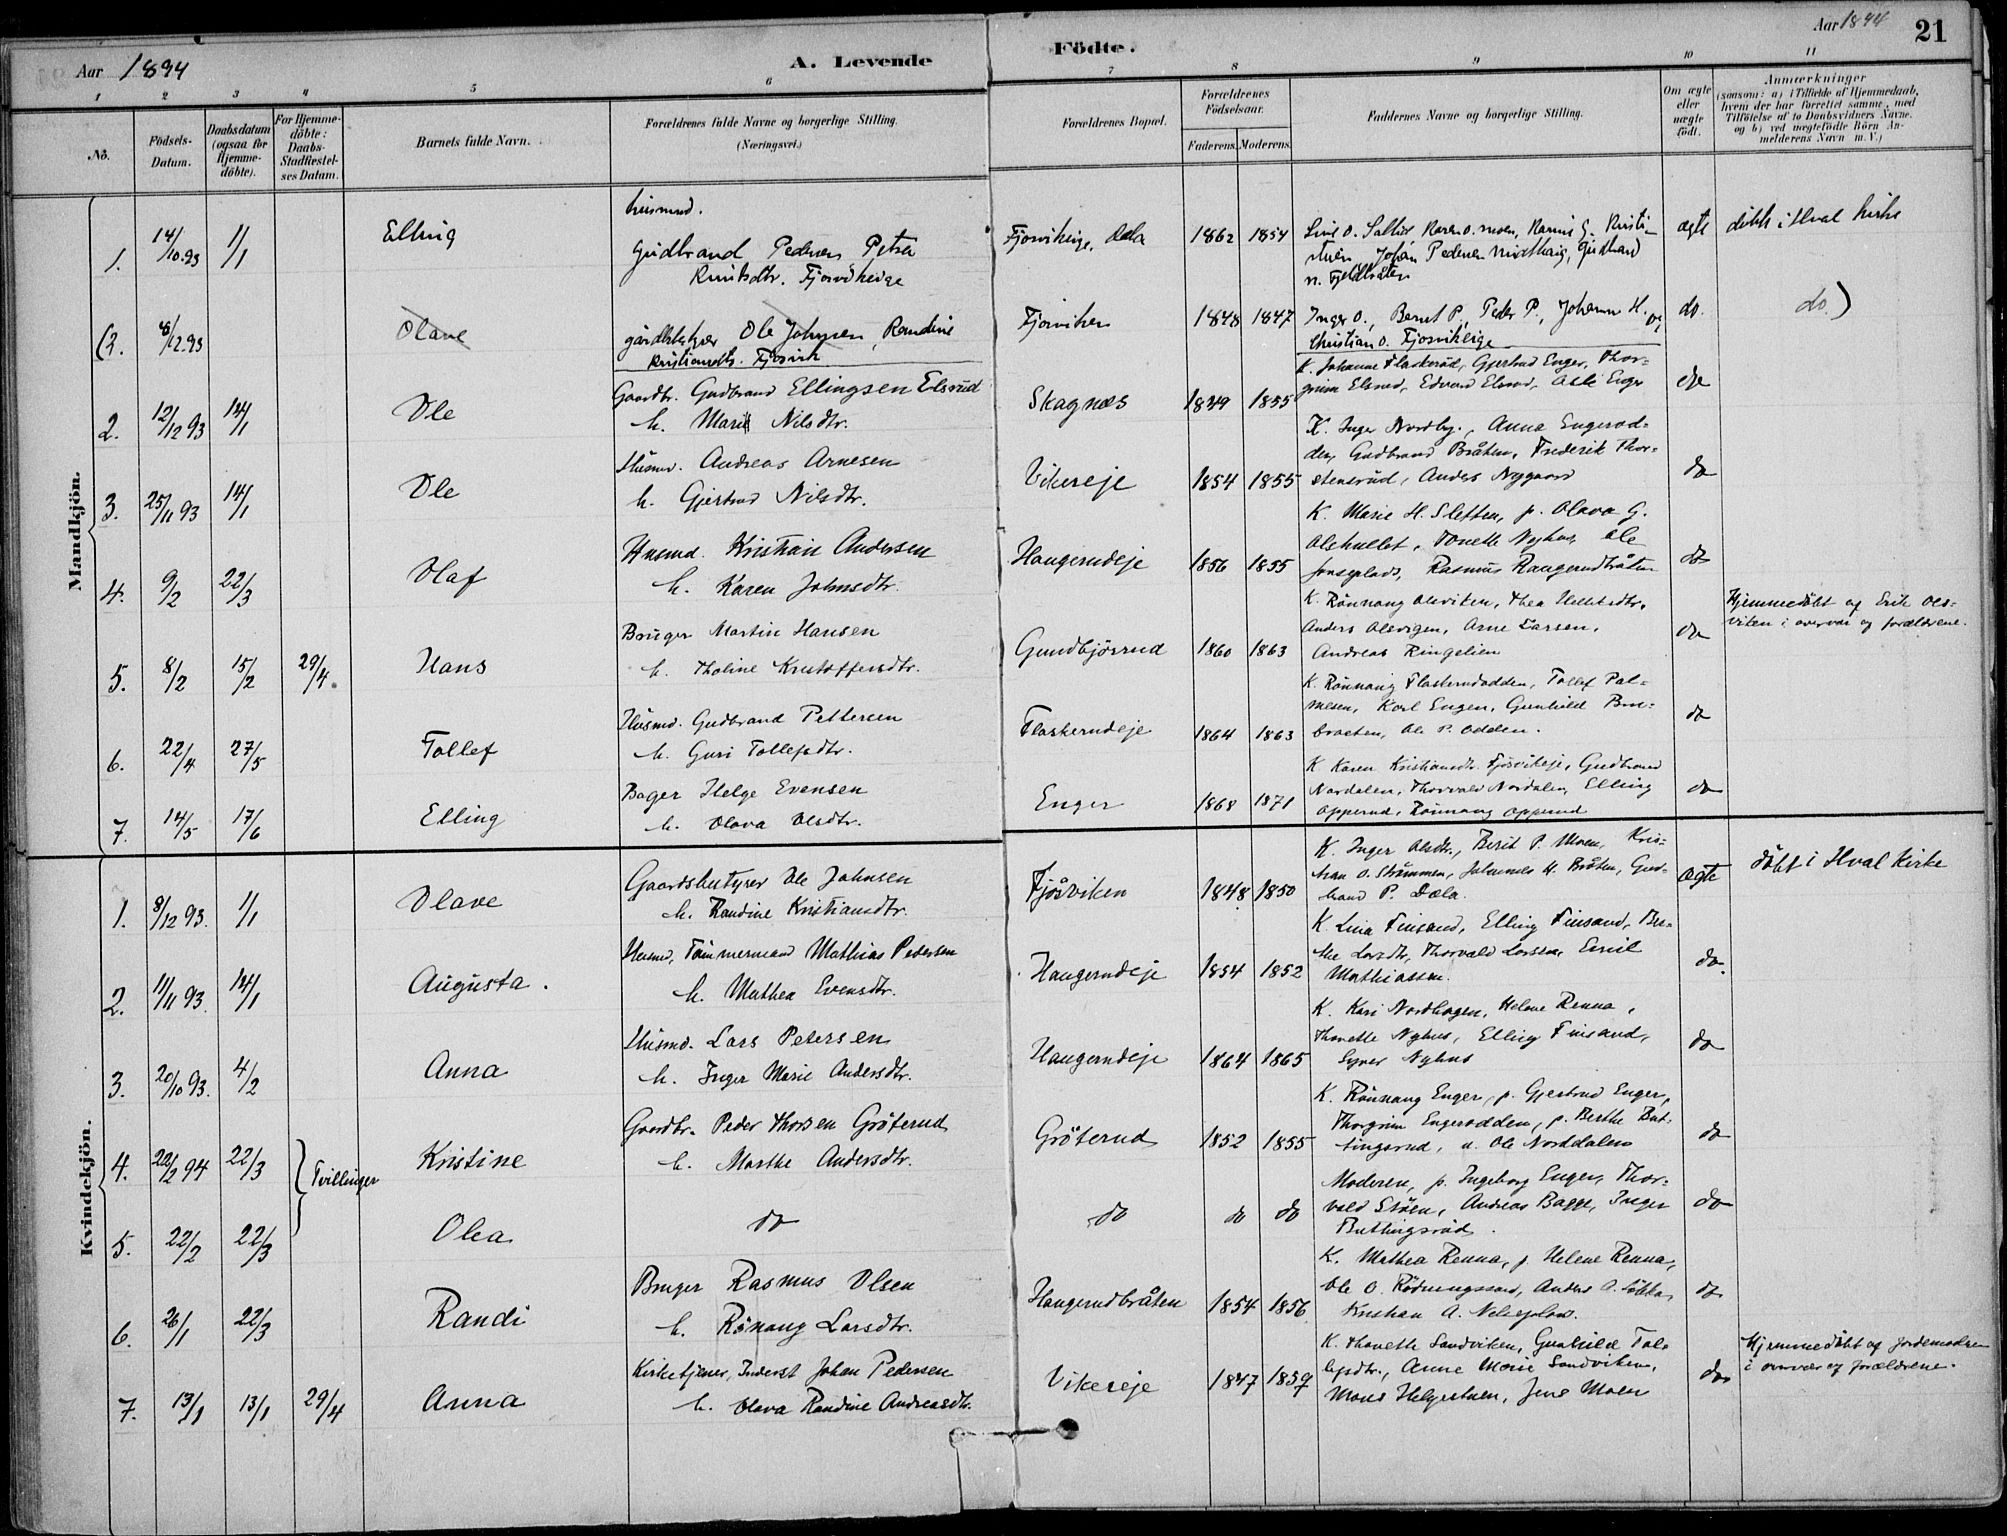 Aar 1894
A. Levende
Födte.
Aar 1894
21
1 2 3 4 5 6 7 8 9 10 11
No.
Födsels-Datum.
Daabsdatum (ogsaa for Hjemme-döbte).
For Hjemme-döbte: Daabs-Stadfæstel-ses Datum.
Barnets fulde Navn.
Forældrenes fulde Navne og borgerlige Stilling.
(Næringsvei.)
Forældrenes Bopæl.
Forældrenes Födselsaar.
Faderens. Moderens.
Faddernes Navne og borgerlige Stilling.
Om ægte eller uægte födt.
Anmærkninger
(saasom: a) i Tilfælde af Hjemmedaab,
hvem der har forrettet samme, med
Tilföielse af to Daabsvidners Navne.
og b) ved uægtefödte Börn An-
melderens Navn m. V.)
Mandkjön.
husmnd.
1. 14/10.93 1/1 Elling Gudbrand Pedersen Petra
Knutsdtr. Fjosvikeige
Fjosvikeige, Dæla 1862 1854
Johan Pedersen
n. Fjeldbråten
ægte döbt i Hval kirke
(2. 8/12.93 Olave gårdsbestyrer Ole Johnsen, Randine
Kristiansdtr. Fjosvik
Fjosviken 1848 1847 Inger O., Bernt P., Peder P., Johannes H. og
Christian O. Fjosvikeige
do. do.)
2. 12/12 93 14/1 Ole Gaardbr. Gudbrand Ellingsen Elsrud
h. Mari Nilsdtr.
Skagnæs 1849 1855
K. Johanne Flaskerud, Gjertrud Enger, Thor-
grim Elsrud, Edvard Elsrud, Asle Enger
3. 25/11 93 14/1 Ole Husmd. Andreas Arnesen
h. Gjertrud Nilsdtr.
Vikereje 1854 1855
K. Inger Nordby, Anna Engerod-
den, Gudbrand Bråten, Frederik Thor-
stensrud, Anders Nygaard
do
4. 9/2 22/3 Olaf Husmd. Kristian Andersen
h. Karen Johnsdtr.
Haugerudeje 1856 1855
K. Marie H. Sletten, p. Olava G.
Olshullet, Tonette Nyhus, Ole
Jonseplads, Rasmus Haugerudbråten
do
5. 8/2 15/2 29/4. Hans Bruger Martin Hansen
h. Tholine Kristoffersdtr.
Gundbjörrud 1860 1863
K. Rönnaug Olsviken, Thea Helletsdtr.
Anders Olsvigen, Arne Larsen,
Andreas Ringelien
do
Hjemmedöbt af Erik Ols-
viken i overvær af forældrene.
6. 22/4 27/5 Tollef Husmd. Gudbrand Pettersen
h. Guri Tollefsdtr.
Flaskerudeje 1864 1863
K. Rönnaug Flaskerudodden, Tollef Pal-
mesen, Karl Engen, Gunhild Bru-
braaten, Ole P. Odden.
do
7. 14/5 17/6 Elling Bager Helge Evensen
h. Olava Olsdtr.
Enger 1868 1871
K Karen Kristiansdtr. Fjösvikeje, Gudbrand
Nordalen, Thorvald Nordalen, Elling
Opperud, Rönnaug Opperud
do
Kvindekjön.
1. 8/12 93. 1/1 Olave Gaardsbestyrer Ole Johnsen
h. Randine Kristiansdtr.
Fjösviken 1848 1850
K. Inger Olsdtr., Berit P. Moen, Kris-
tian O. Strömmen, Johannes H. Bråten, Gud-
brand P. Dæla.
Ægte döbt i Hval Kirke
2. 11/11 93. 14/1 Augusta. Husmd, Tömmermand Mathias Pedersen
h. Mathea Evensdtr.
Haugerudeje 1854 1852
K. Lina Finsand, Elling Finsand, Ber-
the Larsdtr, Thorvald Larssen, Emil
Mathiassen.
do.
3. 20/10 93. 4/2 Anna Husmd. Lars Petersen
h. Inger Marie Andersdtr.
Haugerudeje 1864 1865
K. Kari Nordhagen, Helene Renna,
Thonette Nyhus, Elling Finsand,
Syver Nyhus
do
4. 22/2 94 22/3 Tvillinger Kristine Gaardbr. Peder Thorsen Gröterud
h. Marthe Andersdtr.
Gröterud 1852 1855
K. Rönnaug Enger, p. Gjertrud Enger,
Thorgrim Engerodden, p. Berthe But-
tingsrud, u. Ole Norddalen
do
5. 22/2 22/3 Olea do
do do do
Moderen, p. Ingeborg Enger, Thor-
vald Stöen, Andreas Bagge, Inger
Buttingsrud.
do
6. 26/1 22/3 Randi Bruger Rasmus Olsen
h. Rönaug Larsdtr.
Haugerudbråten 1854 1856
K. Mathea Renna, p. Helene Renna,
Ole O. Rödningssand, Anders A. Lökka,
Kristian A.
do
7. 13/1 13/1 29/4 Anna Kirketjener, Inderst Johan Pedersen
h. Olava Randine Andreasdtr.
Vikereje 1847 1859
K. Thonette Sandviken, Gunhild Tol-
lefsdtr., Anne Marie Sandviken,
Mons Helgestuen, Jens Moen
do
Hjemmedöbt af Jordemoderen
i overvær af forældrene.